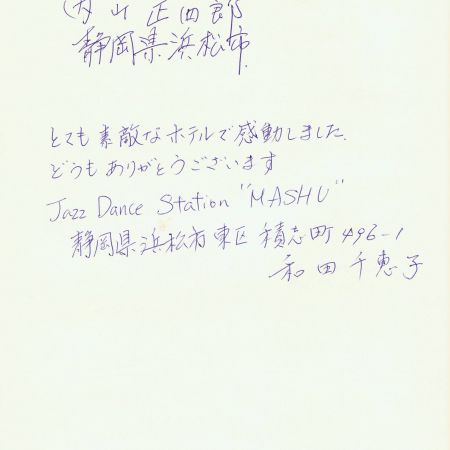 内山正四郎
静岡県浜松市
とても素敵なホテルで感動しました.
どうもありがとうございます
Jazz Dance Station "MASHU"
静岡県浜松市東区積志町496-1
和田千恵子